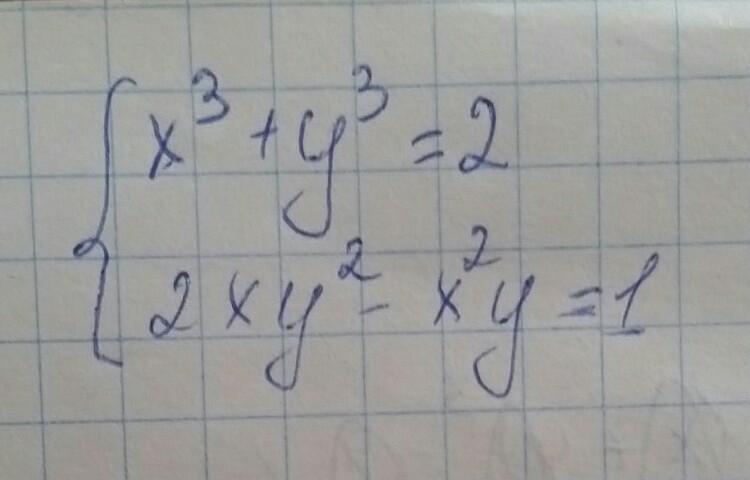 x³ + y³ = 2
2xy² - x²y = 1